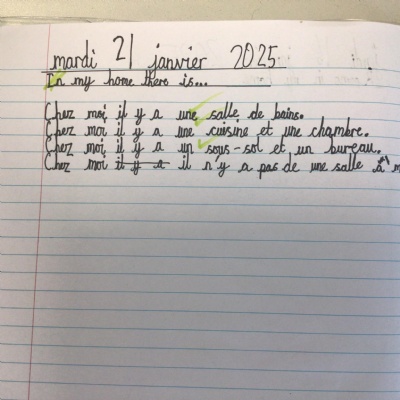 mardi 21 janvier 2025
In my home there is...
Chez moi, il y a une salle de bains.
Chez moi il y a une cuisine et une chambre.
Chez moi, il y a un sous-sol et un bureau.
Chez moi il y a il n'y a pas de une salle à